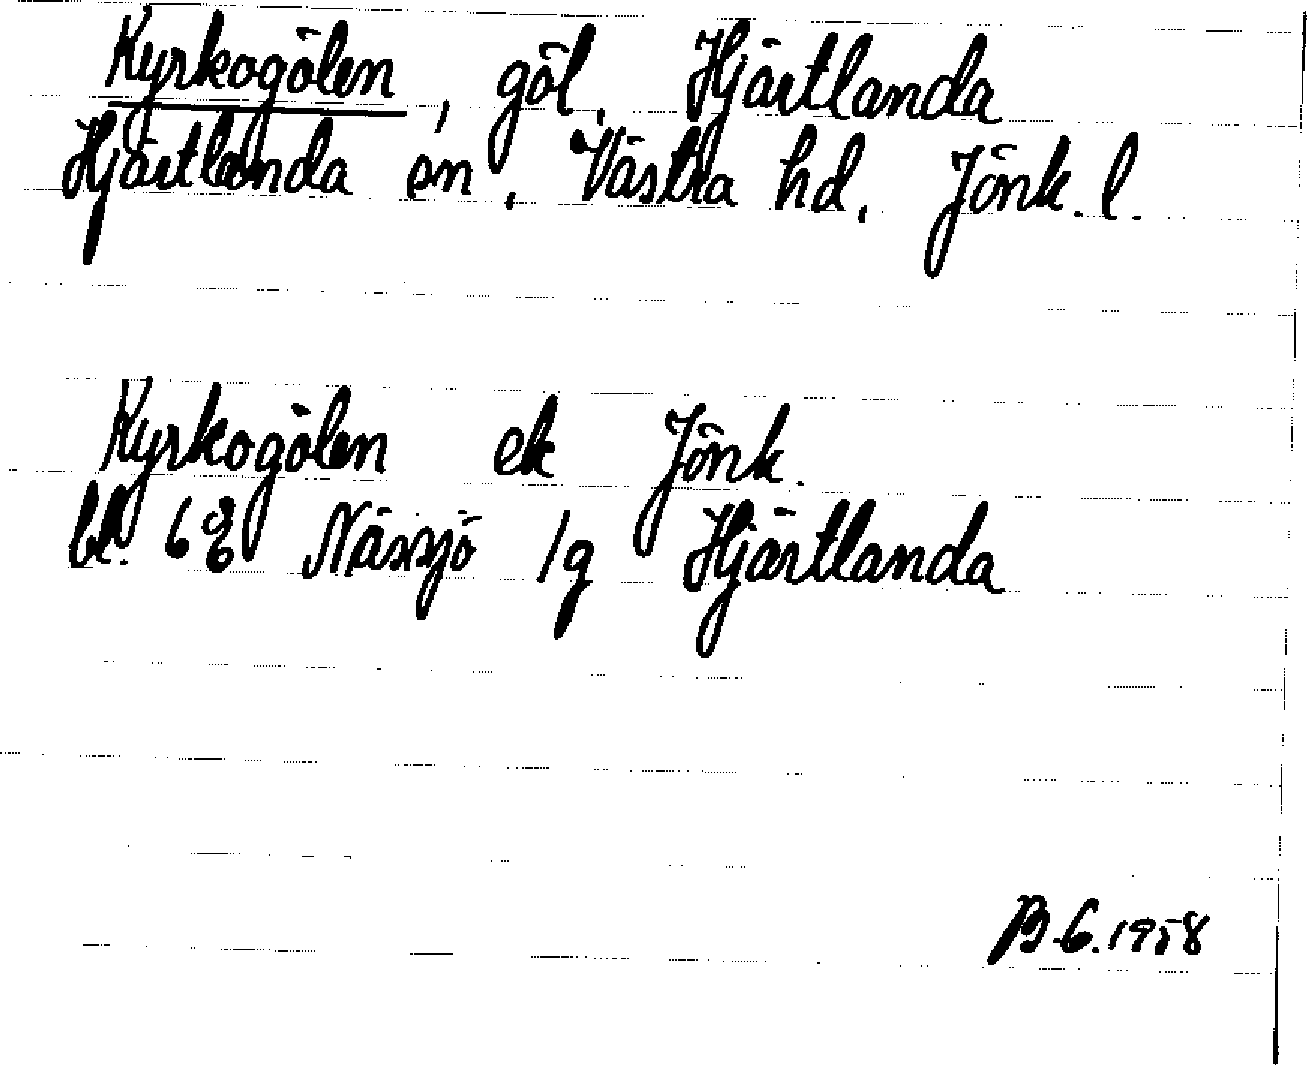 Kyrkogölen, göl, Hjärtlanda
Hjärtlanda sn, Västra hd, Jönk. l.
Kyrkogölen ek Jönk.
bl. 68 Nässjö 1g Hjärtlanda
B-G. 1958